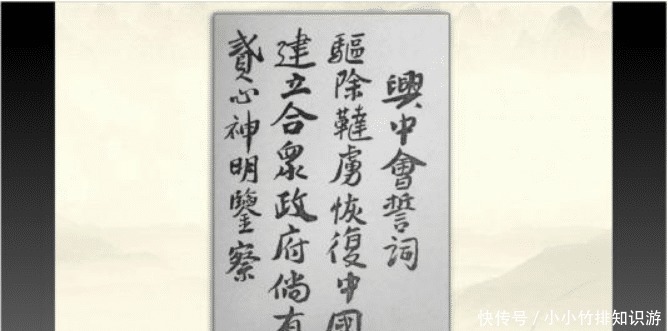 興中會誓詞
驅除韃虜恢復中國
建立合衆政府倘有
貳心神明鑒察
快传号/小小竹排知识游